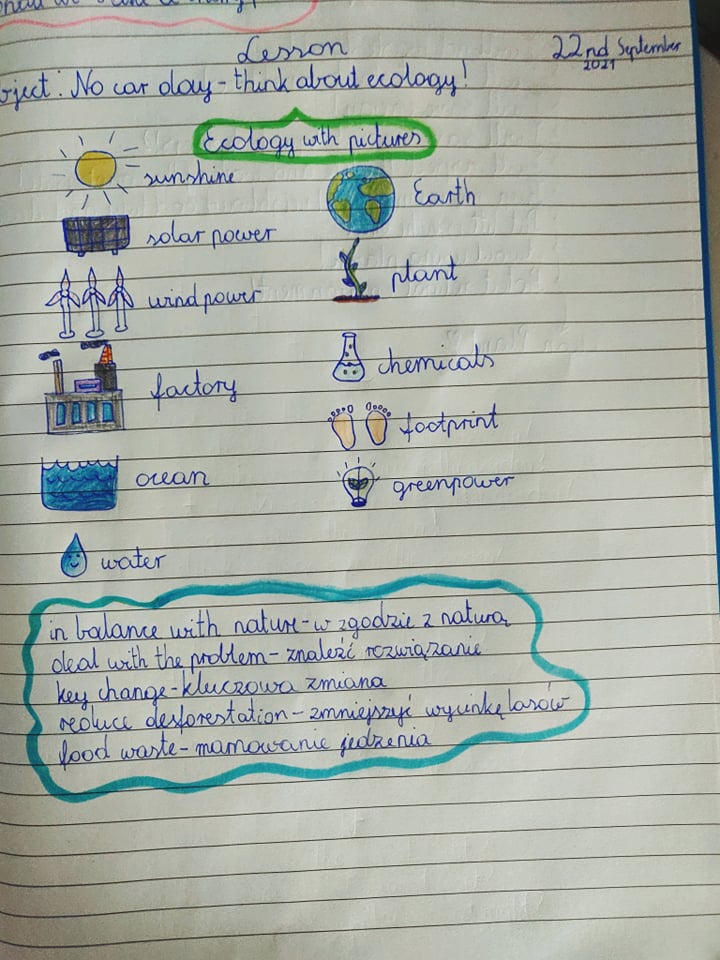 Lesson
22nd September
2021
bject: No car day - think about ecology!
Ecology with pictures
sunshine
Earth
solar power
plant
wind power
chemicals
factory
footprint
ocean
greenpower
water
in balance with nature - w zgodzie z naturą
deal with the problem - znaleźć rozwiązanie
key change - kluczowa zmiana
reduce desforestation - zmniejszyć wycinkę lasów
food waste - marnowanie jedzenia